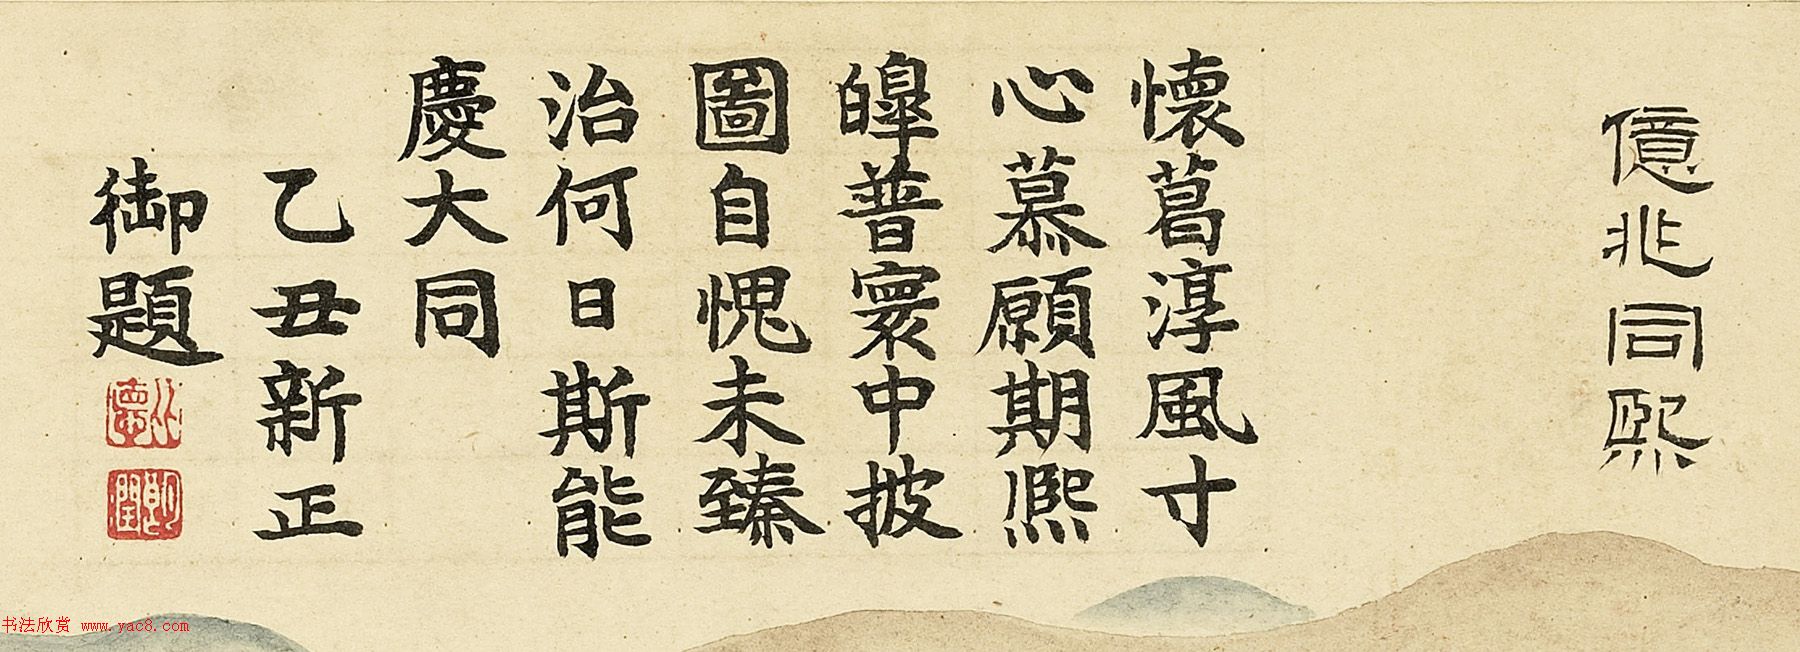 億兆同熙
懷葛淳風寸
心慕願期熈
皥普寰中披
圖自愧未臻
治何日斯能
慶大同
乙丑新正
御題
比德
朗潤
书法欣赏 www.yac8.com